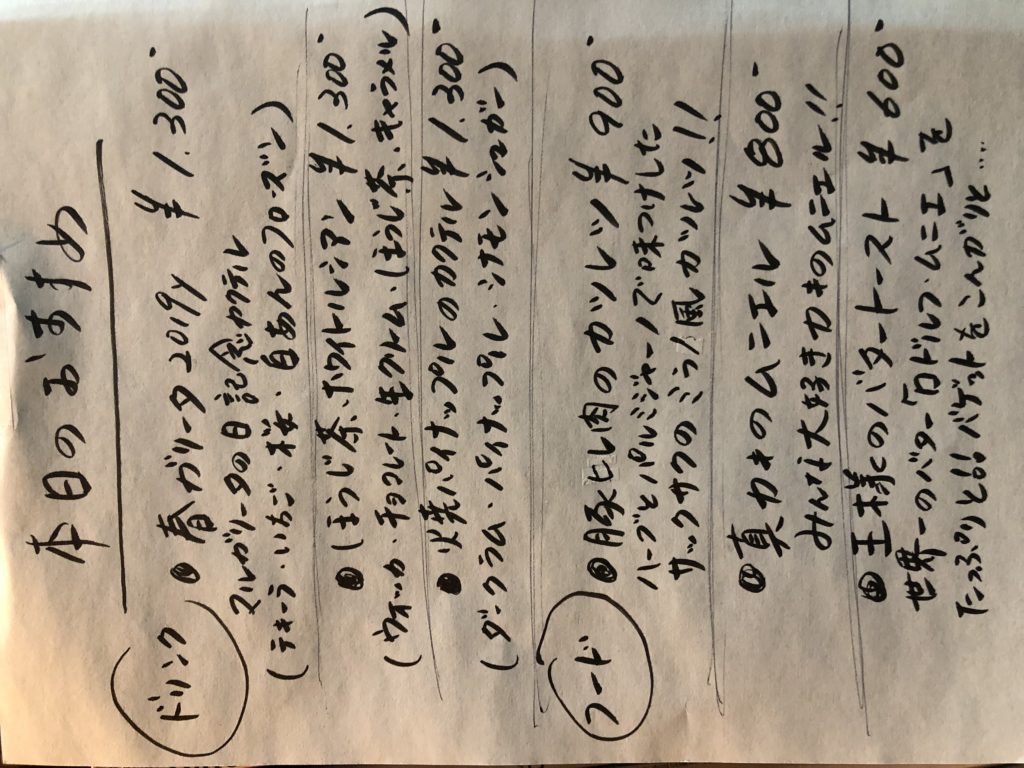 本日のおすすめ
ドリンク
● 春ガリータ2019y ¥1,300-
マルガリータの日 記念カクテル
(テキーラ・いちご・桜・白あんのフローズン)
● ほうじ茶ホワイトルシアン ¥1,300-
(ウォッカ・チョコレート・生クリーム・ほうじ茶・キャラメル)
● 焼パイナップルのカクテル ¥1,300-
(ダークラム・パイナップル・シナモン・シュガー)
フード
● 豚ヒレ肉のカツレツ ¥900-
ハーブとパルミジャーノで味つけした
サックサクのミラノ風カツレツ!!
● 真カキのムニエル ¥800-
みんな大好きカキのムニエル!!
● 王様のバタートースト ¥600-
世界一のバター「ロドルフ・ムニエ」を
たっぷりと!!バゲットをこんがりと.....